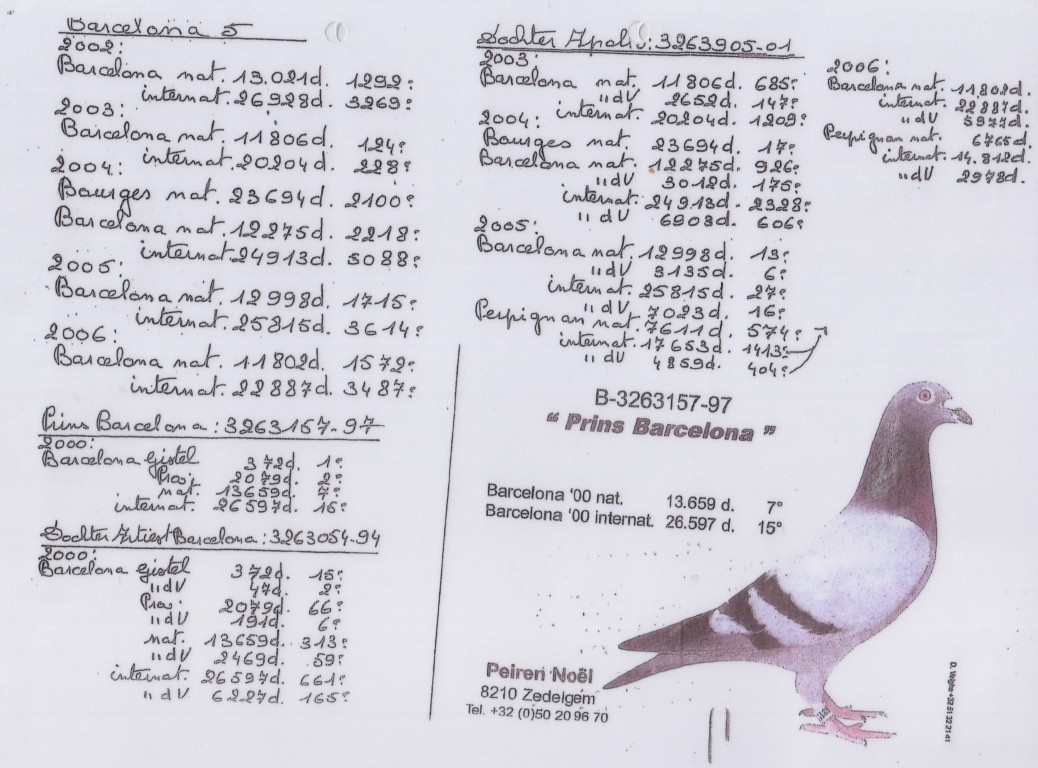 Barcelona 5
2002:
Barcelona nat. 13.021d. 1292e
internat. 26928d. 3269e
2003:
Barcelona nat. 11806d. 124e
internat. 20204d. 228e
2004:
Bourges nat. 23694d. 2100e
Barcelona nat. 12275d. 2218e
internat. 24913d. 5088e
2005:
Barcelona nat. 12998d. 1715e
internat. 25815d. 3614e
2006:
Barcelona nat. 11802d. 1572e
internat. 22887d. 3487e
Prins Barcelona: 3263157-97
2000:
Barcelona Gistel 372d. 1e
Prov. 2079d. 2e
nat. 13659d. 7e
internat. 26597d. 15e
Dochter Artiest Barcelona: 3263054-94
2000:
Barcelona Gistel 372d. 15e
"dV 47d. 2e
Prov. 2079d. 66e
"dV 191d. 6e
nat. 13659d. 313e
"dV 2469d. 59e
internat. 26597d. 661e
"dV 6227d. 165e
Dochter Apolis: 3263905-01
2003:
Barcelona nat. 11806d. 685e
"dV 2652d. 147e
internat. 20204d. 1209e
2004:
Bourges nat. 23694d. 17e
Barcelona nat. 12275d. 926e
"dV 3012d. 175e
internat. 24913d. 2328e
"dV 6903d. 606e
2005:
Barcelona nat. 12998d. 13e
"dV 3135d. 6e
internat. 25815d. 27e
"dV 7023d. 16e
Perpignan nat. 7611d. 574e
internat. 17653d. 1413e
"dV 4859d. 404e
2006:
Barcelona nat. 11.802d.
internat. 22887d.
"dV 5977d.
Perpignan nat. 6765d
internat. 14.812d.
"dV 2978d.
B-3263157-97
“ Prins Barcelona ”
Barcelona '00 nat. 13.659 d. 7°
Barcelona '00 internat. 26.597 d. 15°
Peiren Noël
8210 Zedelgem
Tel. +32 (0)50 20 96 70